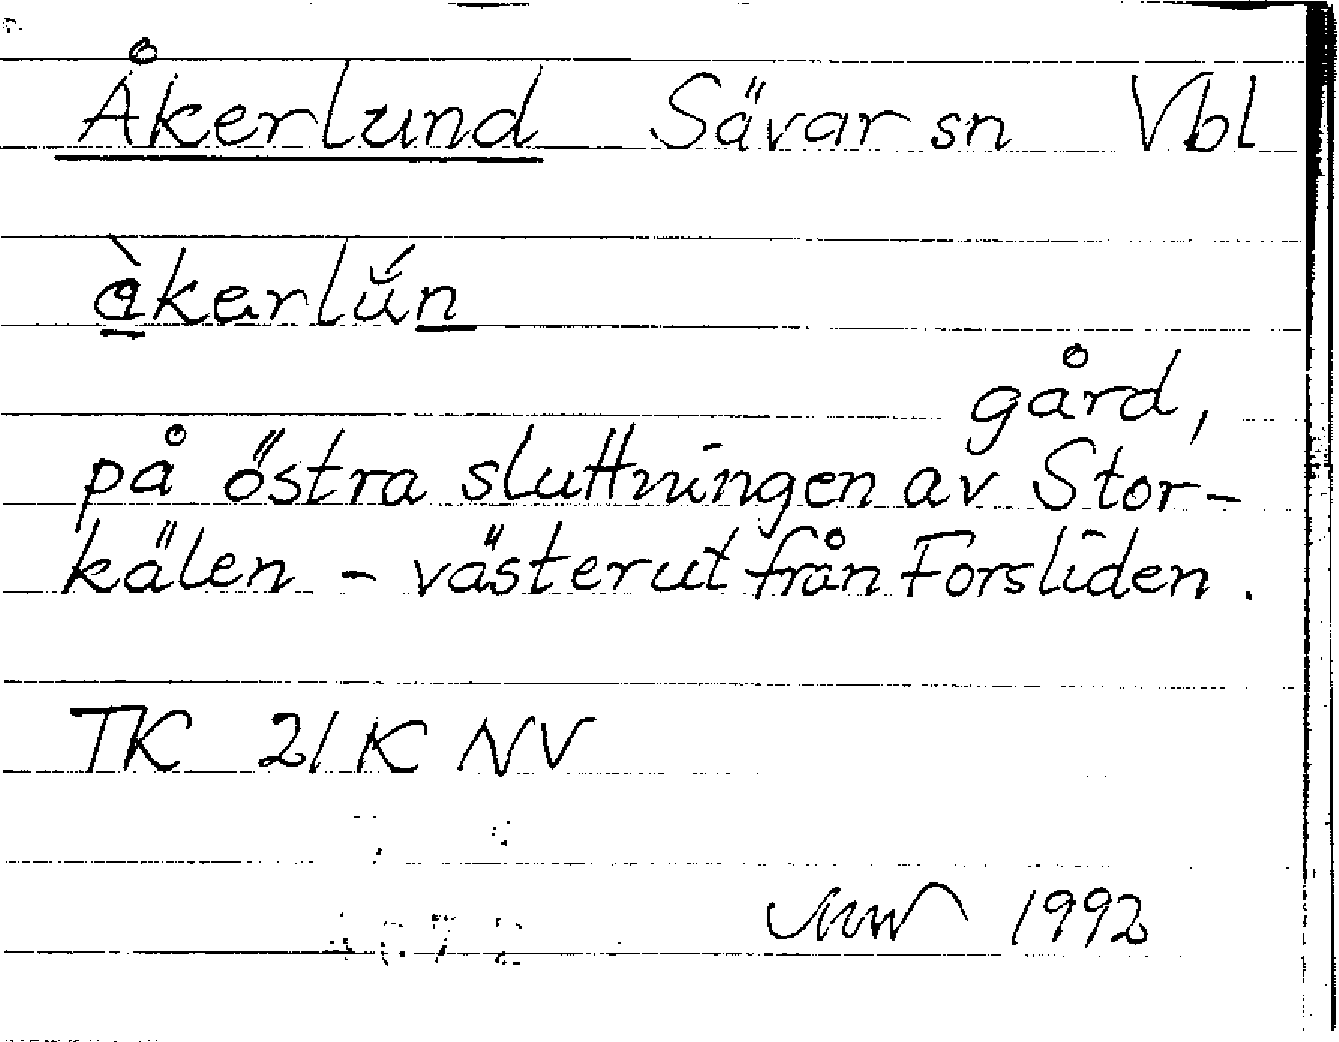 Åkerlund Sävar sn Vbl
àkerlŭ́n
gård,
på östra sluttningen av Stor-
kälen - västerut från Forsliden.
TK 21 K NV
1992